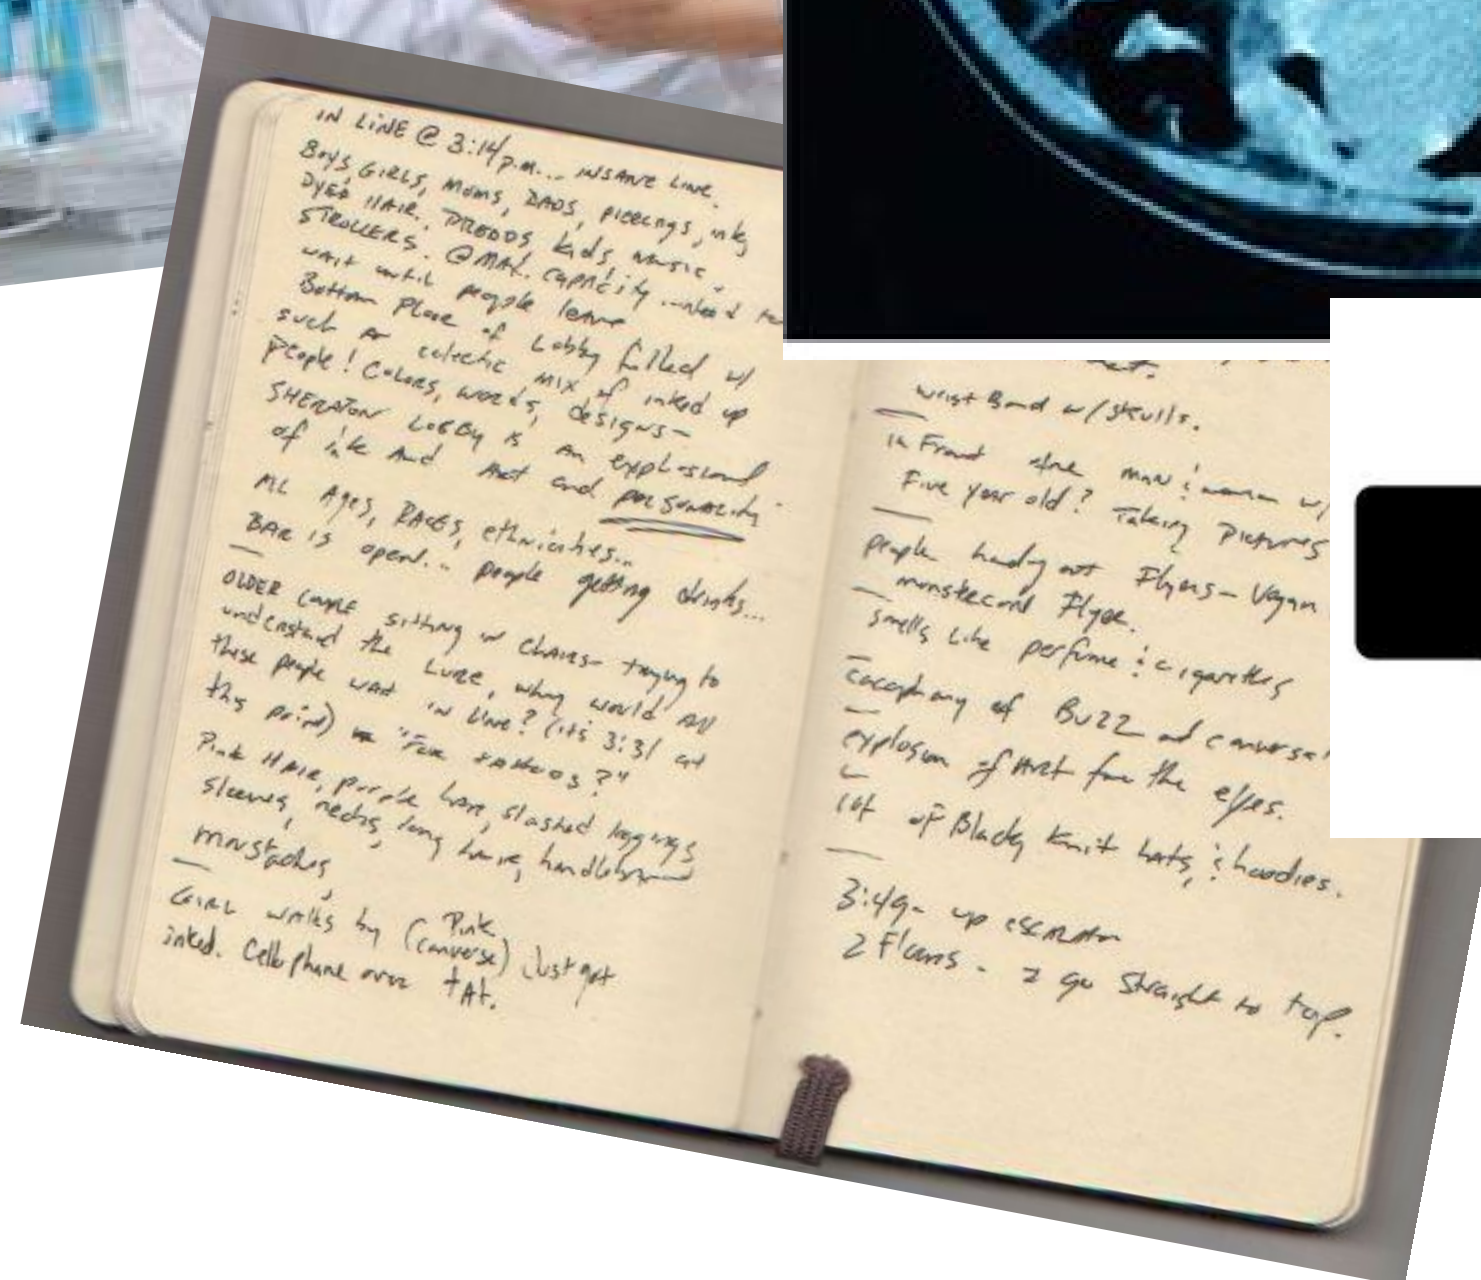 IN LINE @ 3:14 p.m... INSANE LINE.
Boys, GIRLS, MOMS, DADS, piercings, ink,
DYED HAIR. DREDDS, kids, music,
STROLLERS. @MAX. CAPACITY ...need to
wait until people leave
Bottom Floor of Lobby filled w/
such an eclectic mix of inked up
People! Colors, words, designs-
SHERATON LOBBY is an explosion
of ink And Art and personality
All Ages, RACES, ethnicities...
BAR is open... people getting drinks...
OLDER COUPLE sitting in CHAIRS- trying to
understand the LURE, why would All
these people wait in line? (it's 3:31 at
this point) "For tattoos?"
Pink HAIR, purple hair, slashed leggings
sleeves, necks, long hair, handlebar
moustaches
GIRL walks by (Pink
converse) Just got
inked. Cellophane over tAt.
wrist Band w/ skulls.
in Front are man & woman w/
Five year old? Taking Pictures
people handing out Flyers- Vegan
Flyer.
smells like perfume & cigarettes
cacophony of BUZZ and
explosion of ART for the eyes.
lot of Black knit hats, & hoodies.
3:49- up escalator
2 Floors - I go Straight to top.